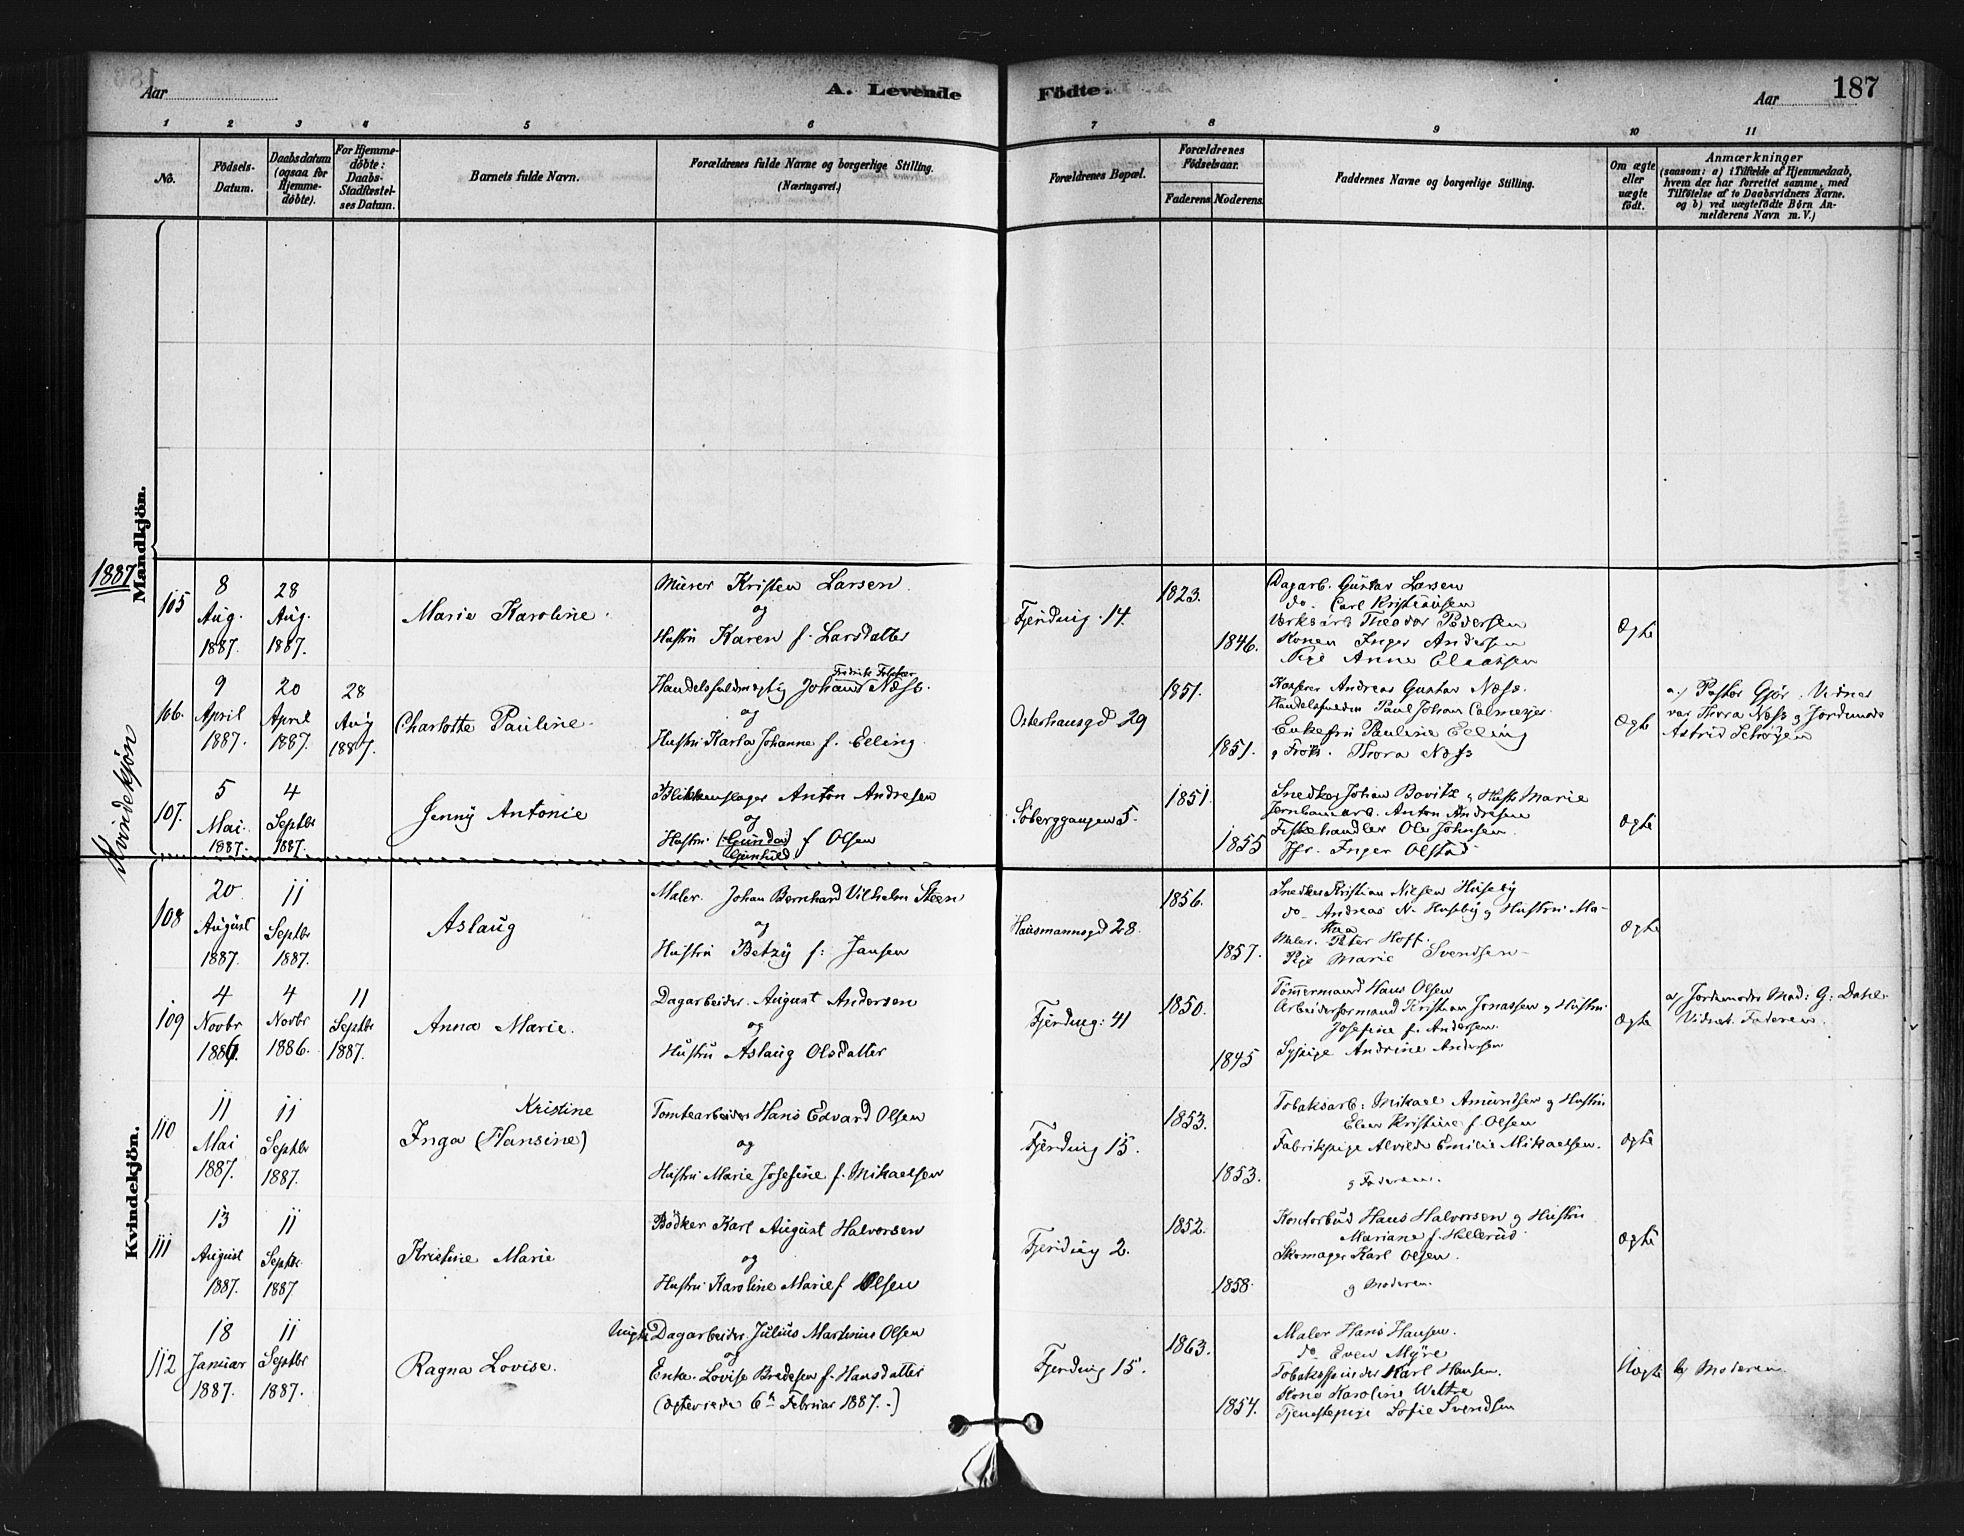 Aar
A. Levende
Födte.
Aar
187
1 2 3 4 5 6 7 8 9 10 11
No.
Födsels-
Datum.
Daabsdatum
(ogsaa for
Hjemme-
döbte).
For Hjemme-
döbte:
Daabs-
Stadfæstel-
ses Datum.
Barnets fulde Navn.
Forældrenes fulde Navne og borgerlige Stilling.
(Næringsvei.)
Forældrenes Bopæl.
Forældrenes
Födselsaar.
Faderens
Moderens
Faddernes Navne og borgerlige Stilling.
Om ægte
eller
uægte
födt.
Anmærkninger
(saasom: a) i Tilfælde af Hjemmedaab,
hvem der har forrettet samme, med
Tilföielse af to Daabsvidners Navne.
og b) ved uægtefödte Börn An-
melderens Navn m.V.)
Mandkjön.
1887
Kvindekjön
Kvindekjön.
105
8
Aug.
1887.
28
Aug.
1887.
Marie Karoline.
Murer Kristen Larsen
og
Hustru Karen f. Larsdatter
Fjerding. 14.
1823.
1846.
Dagarb. Gustav Larsen
do. Carl Kristiansen
Værksarb Theodor Pedersen
Konen Inger Andersen
Pige Anne Eliassen
Ægte
106.
9
April
1887.
20
April
1887.
28
Aug
1887.
Charlotte Pauline.
Handelsfuldmægtig Johans Næss.
og
Hustru Karla Johanne f. Elling.
Osterhausgd 29
1851.
1851.
Kasserer Andreas Gustav Næss.
Handelsfuldm Paul Johan Calmeyer
Enkefru Pauline Elling
g Frök. Thora Næss
Ægte
a.) Pastor Gjör. Vidner
var Thora Næss g Jordmoder
Astrid
107.
5
Mai
1887.
4
Septbr
1887.
Jenny Antonie
Blikkenslager Anton Andresen
og
Hustru (Gunda) f Olsen
Gunhild
Söberggangen 5.
1851.
1855
Snedker Johan Bovitz g Hustr Marie
Jernbanearb. Anton Andresen
Fiskehandler Ole Johnsen.
Jfr. Inger Olstad
Ægte
108
20
August
1887.
11
Septbr
1887.
Aslaug
Maler. Johan Bernhard Vilhelm Steen
og
Hustru Betzy f: Jansen
Hausmannsgd 28.
1856.
1857.
Snedker Kristian Nilsen Huseby
do- Andreas N- Huseby g Hustru Ma-
thea
Maler. Peter Hoff.
Pige Marie Svendsen-
Ægte
109
4
Novbr
1886.
4
Novbr
1886.
11
Septbr
1887.
Anna Marie.
Dagarbeider. August Andersen
og
Hustru Aslaug Olsdatter
Fjerding: 41
1850.
1845
Tömmermand Hans Olsen
Arbeiderformand Kristian Jonassen g Hustru
Josefine f. Andersen.
Sypige Andrine Andersen
Ægte
a) Jordemoder Mad: G: Dahl.
Vidnet. Faderen.
110
11
Mai
1887.
11
Septbr
1887.
Kristine
Inga (Hansine)
Tomtearbeider Hans Edvard Olsen
og
Hustru Marie Josefine f. Mikaelsen
Fjerding 15.
1853.
1853.
Tobaksarb: Mikael Amundsen g Hustru
Elen Kristine f. Olsen
Fabrikpige Alvilde Emilie Mikaelsen.
g Faderen.
Ægte
111
13
August
1887.
11
Septbr.
1887
Kristine Marie
Bödker Karl August Halvorsen
og
Hustru Karoline Marie f Olsen
Fjerding 2.
1852.
1858
Kontorbud Hans Halvorsen g Hustru
Mariane f. Hellerud
Skomager Karl Olsen.
g Moderen.
Ægte
112
18
Januar
1887.
11
Septbr
1887.
Ragna Lovise.
Ungk Dagarbeider, Julius Martinius Olsen
og
Enke. Lovise Bredesen f. Hansdatter
(Ægteviede 6te Februar 1887.)
Fjerding 15.
1863.
1854.
Maler Hans Hansen.
do Even Myre
Tobaksspinder Karl Hansen.
Kone Karoline Wettre
Tjenestepige Sofie Svendsen
Uægte
b) Moderen